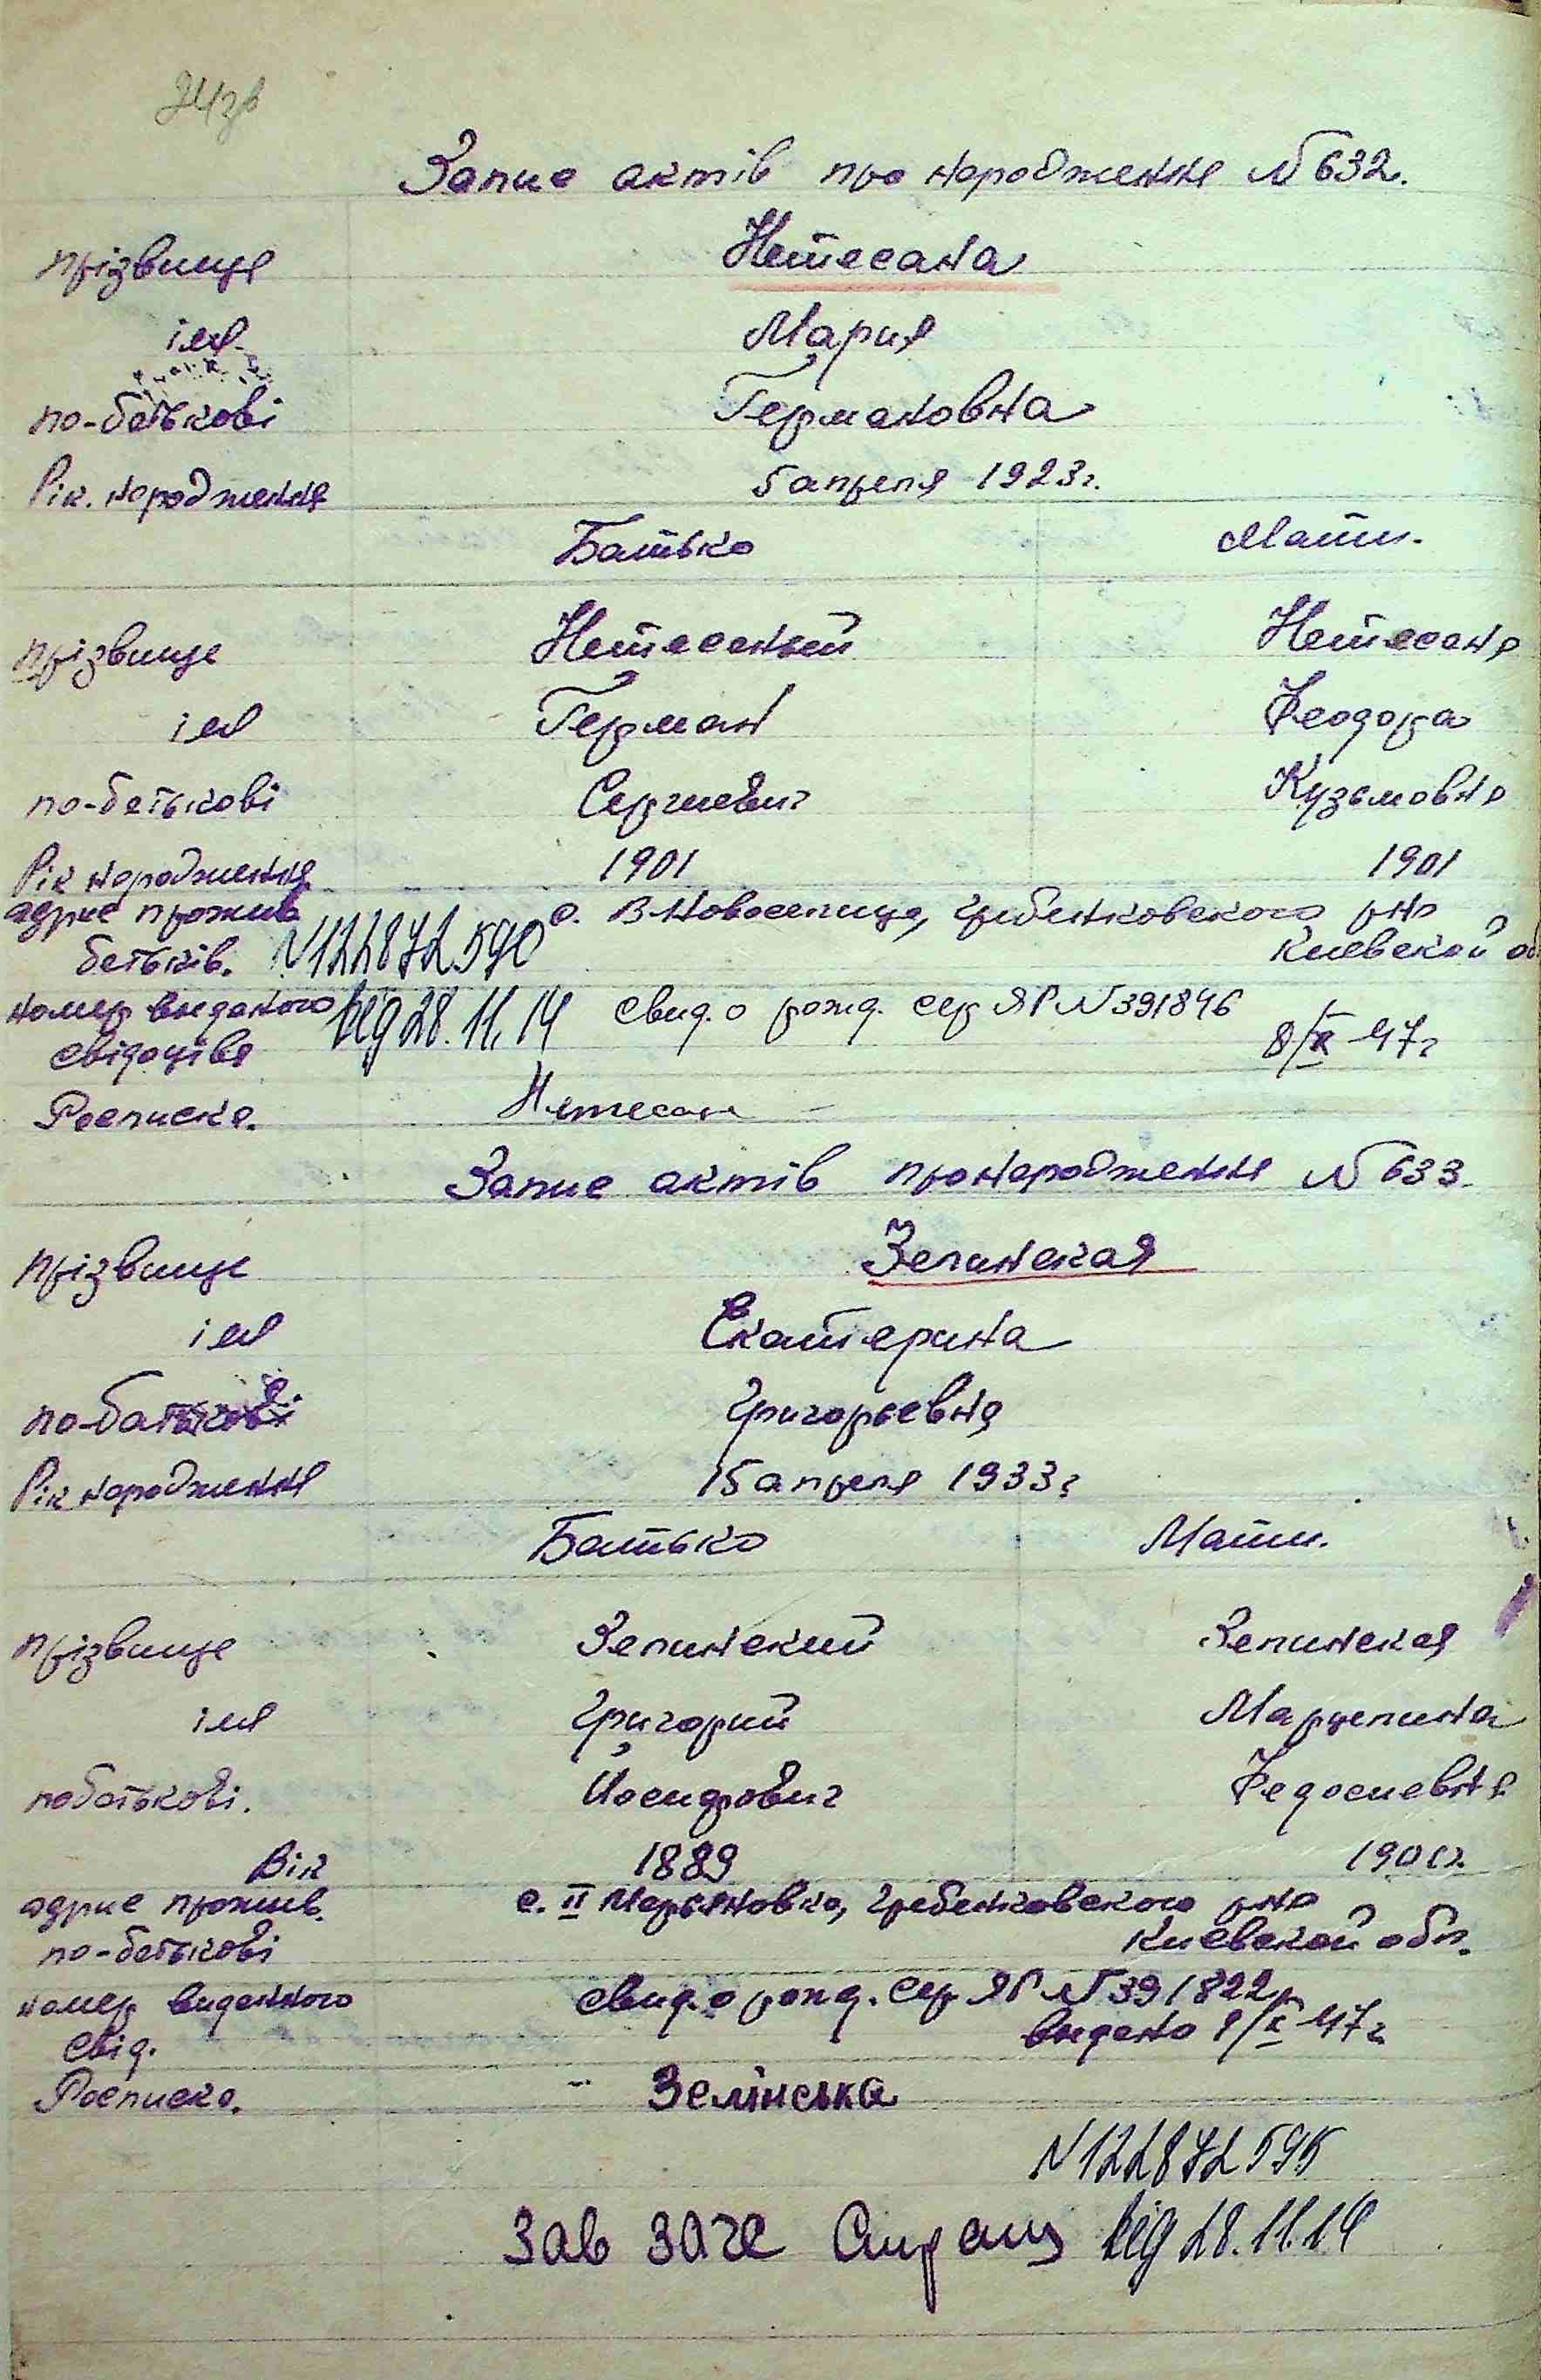 24зв
Запис актів про народження N 632.
прізвище Нетесана
імя Мария
по-батькові Германовна
Рік. народження 5 апреля 1923г.
Батько Мати.
прізвище Нетесаный Нетесана
імя Герман Феодора
по-батькові Сергиевич Кузьмовна
Рік народження 1901 1901
адрис прожив. с. В-Новоселица, Гребенковского р-на
батьків. N122872590 Киевской об
номер виданого від 28.11.14 свид. о рожд. сер ЯР N 391846
свідоцтва 8/X 47г
Росписка. Нетесан
Запис актів про народження N 633.
прізвище Зелинская
імя Екатерина
по-батькові Григорьевна
Рік народження 15 апреля 1933г
Батько Мати.
прізвище Зелинский Зелинская
імя Григорий Марцелина
по батькові. Йосифович Федосиевна
Вік 1889 1901г.
адрис прожив. с. II Марьяновка, Гребенковского р-на
по-батькові Киевской обл.
номер виданного свид. о рожд. Сер ЯР N 391822
свід. видано 9/X 47г
Росписка. Зелінська
N122872595
Зав ЗАГС від 28.11.14